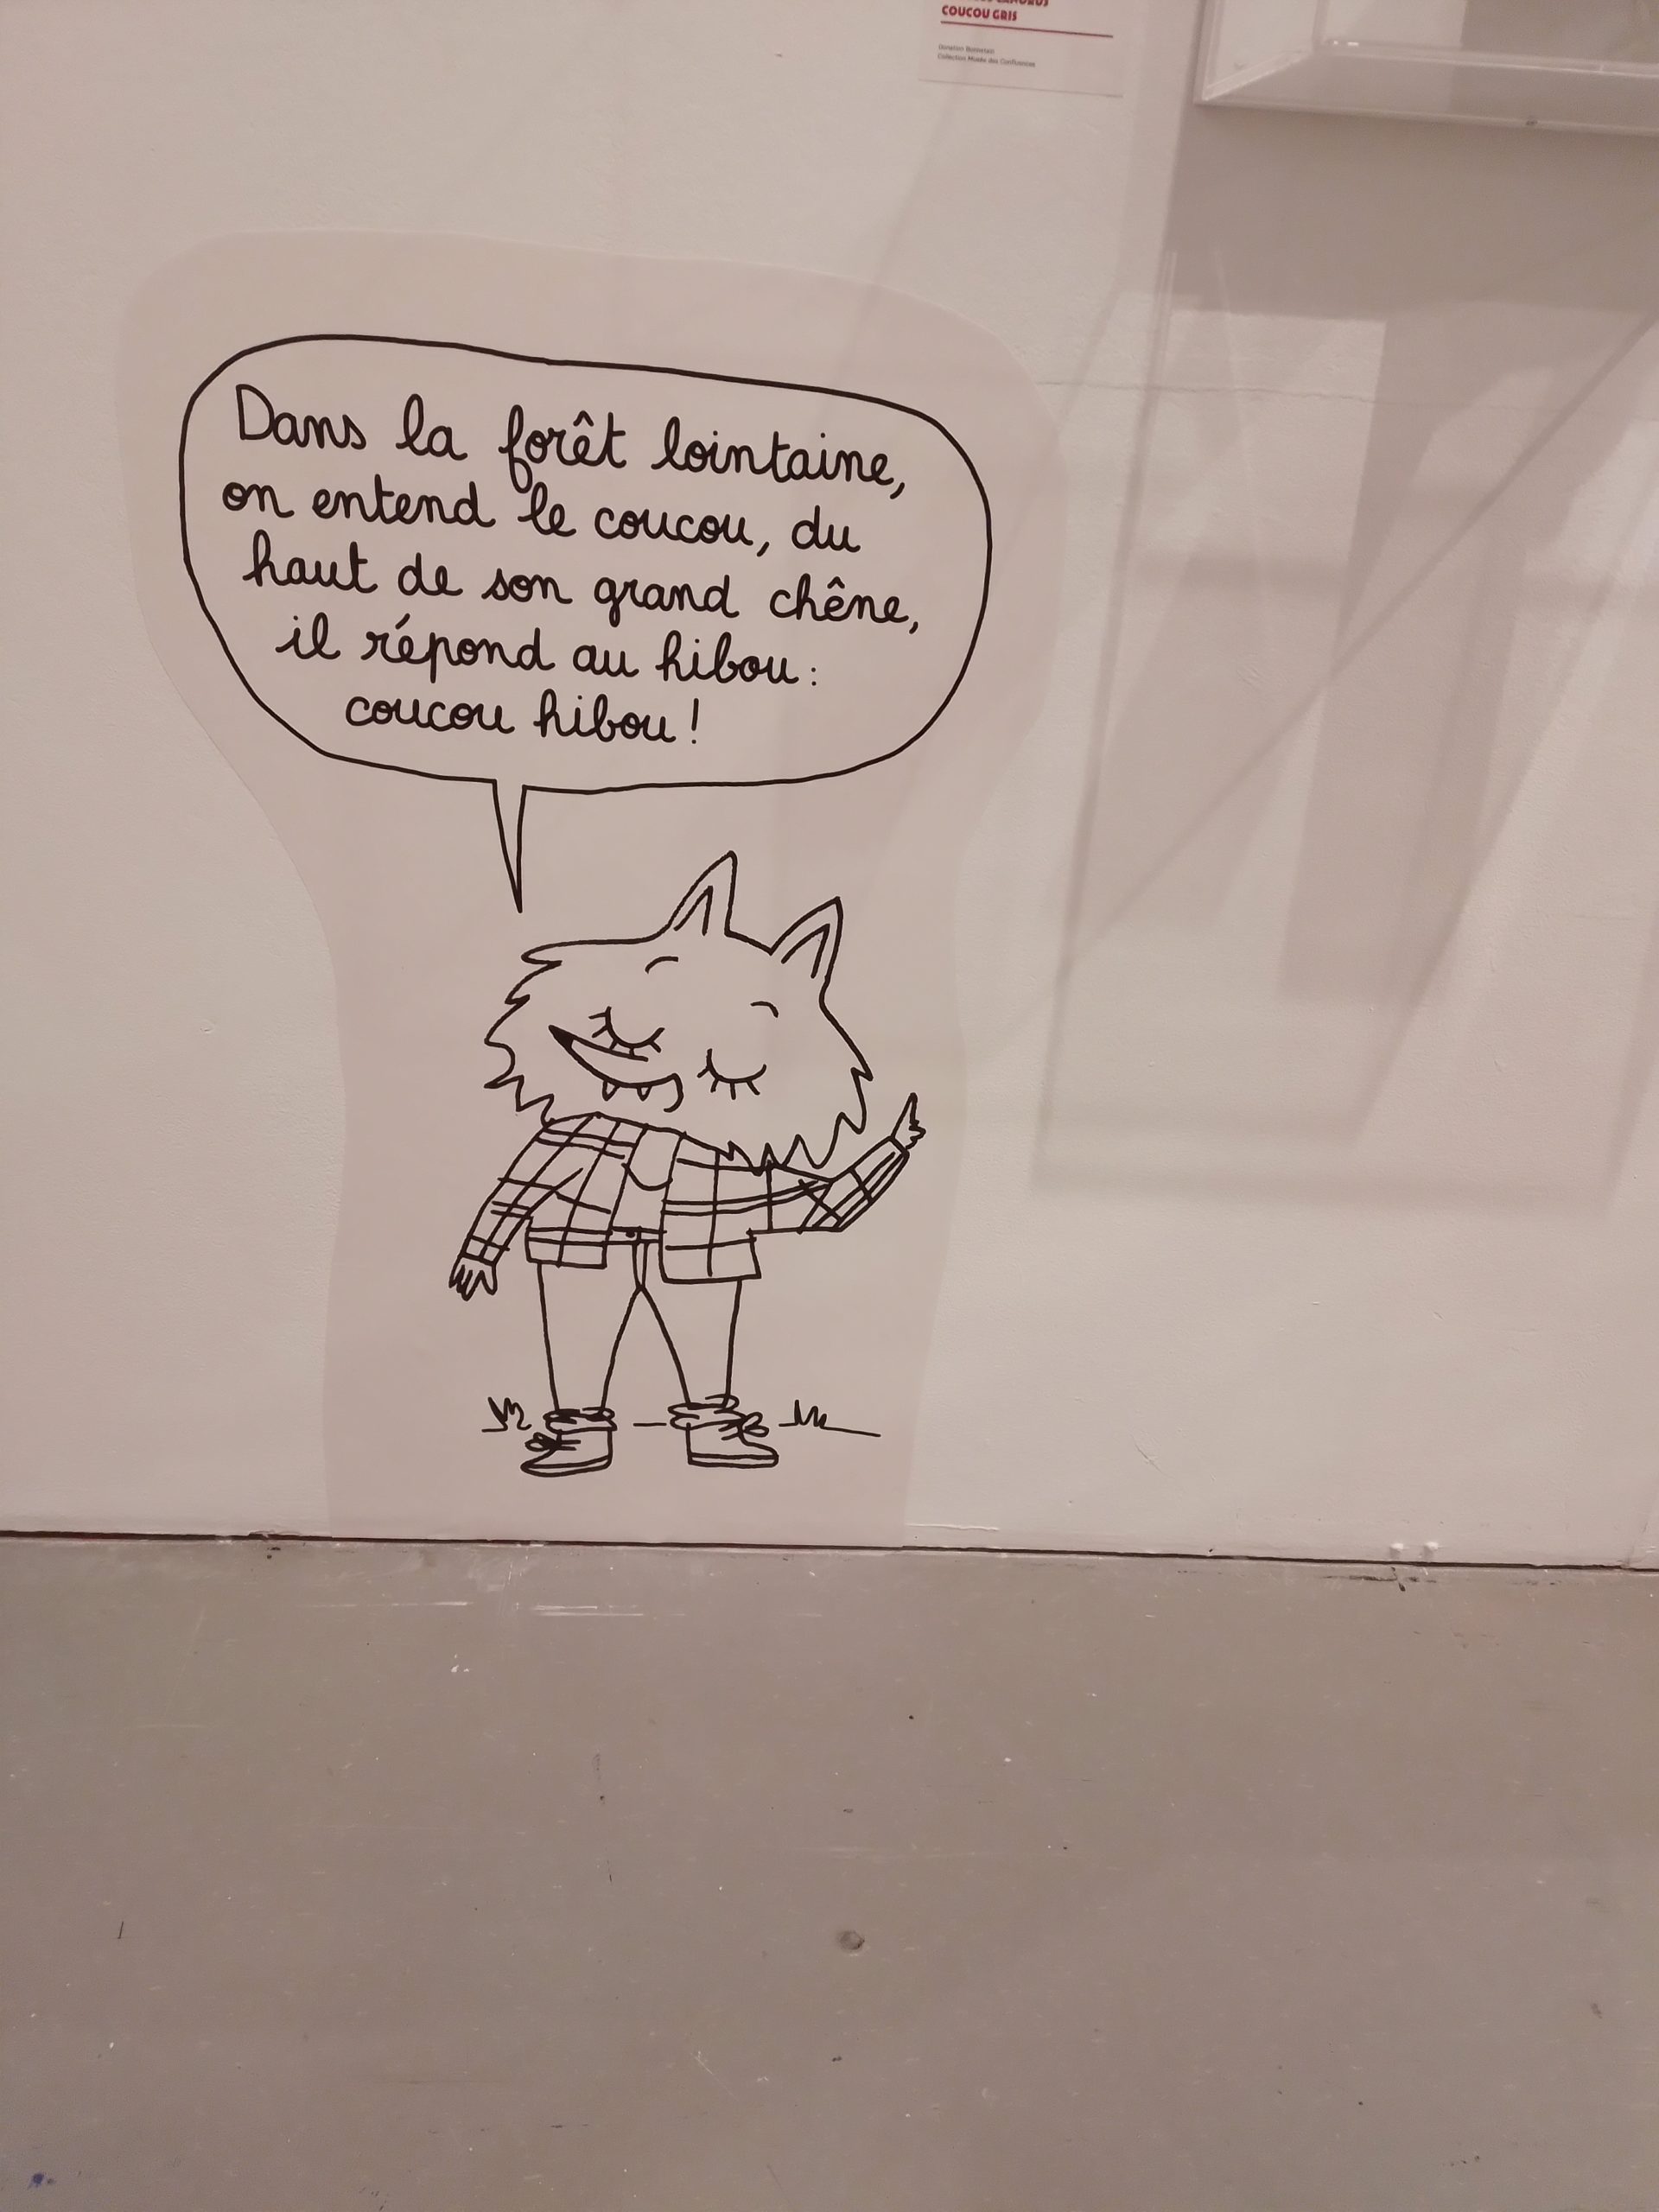 COUCOU GRIS
Collection Musée des Confluences
Dans la forêt lointaine,
on entend le coucou, du
haut de son grand chêne,
il répond au hibou :
coucou hibou !